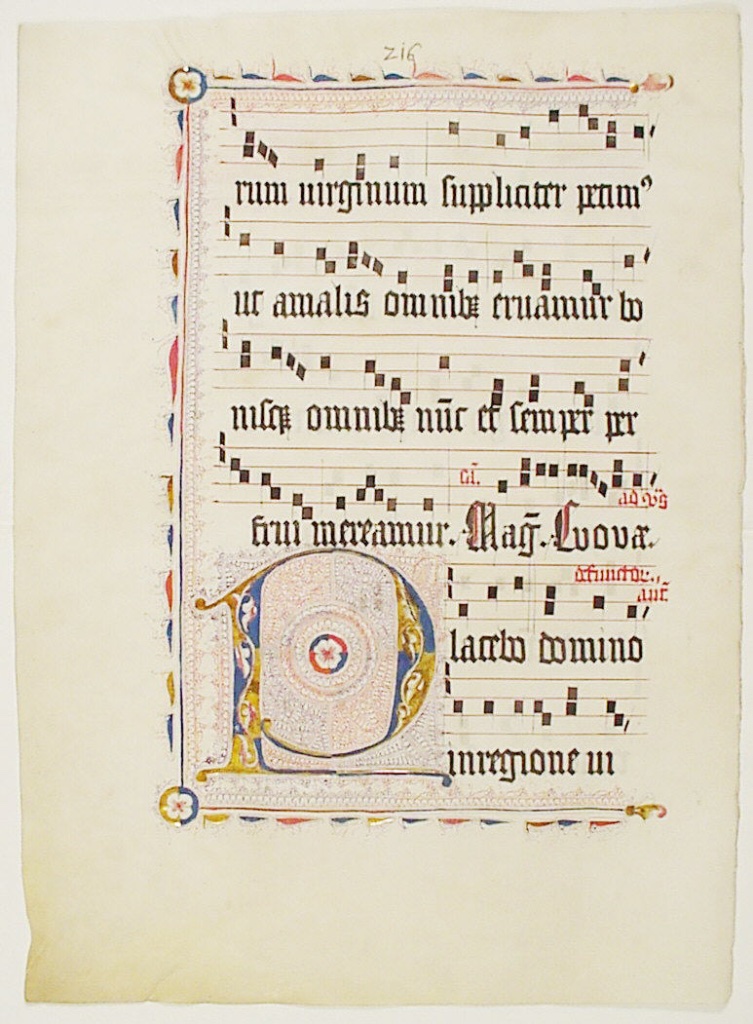 216
rum uirginum suppliciter petim⁹
ut amalis omnibꝫ eruamur bo
nisqꝫ omnibꝫ nūc et semper per
frui mereamur. Mag̃. Euouæ.
ad
defunctor.
ant̄.
Placebo domino
inregione ui